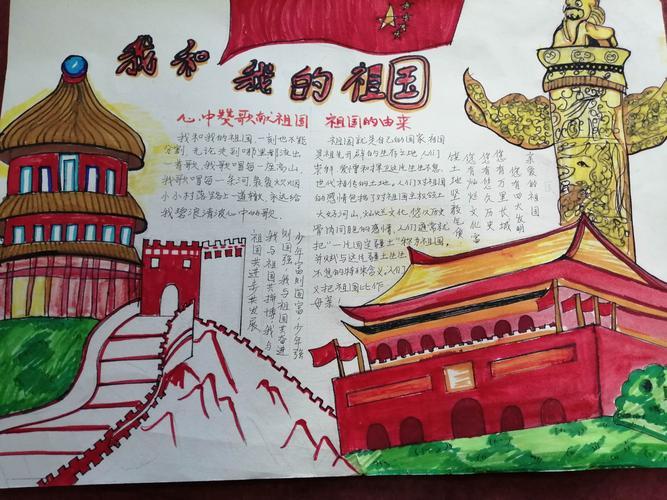 我和我的祖国
心中赞歌献祖国
祖国的由来
我和我的祖国,一刻也不能
分割,无论走到哪里都流出
一首歌,我歌唱每一座高山,
我歌唱每一条河,袅袅炊烟
小小村落,路上一道辙,永远给
我碧浪清波心中的歌.
祖国就是自己的国家,祖国
是祖先开辟的生存之地,人们
崇拜、爱惜和捍卫这片生生不息,
世代相传的土地.人们对祖国
的感情包括了对祖国主权领土
大好河山,灿烂文化,悠久历史
骨肉同胞的感情,人们通常就
把"一片国家疆土"称为祖国,
并赋与这片疆土生生
不息的特殊含义.人们
又把祖国比作
母亲!
亲爱的祖国
您有四大发明
您有万里长城
您有悠久历史
您有灿烂文化
少年富则国富,少年强
则国强,我与祖国共奋进
我与祖国共拼博,我与
祖国共进步共发展